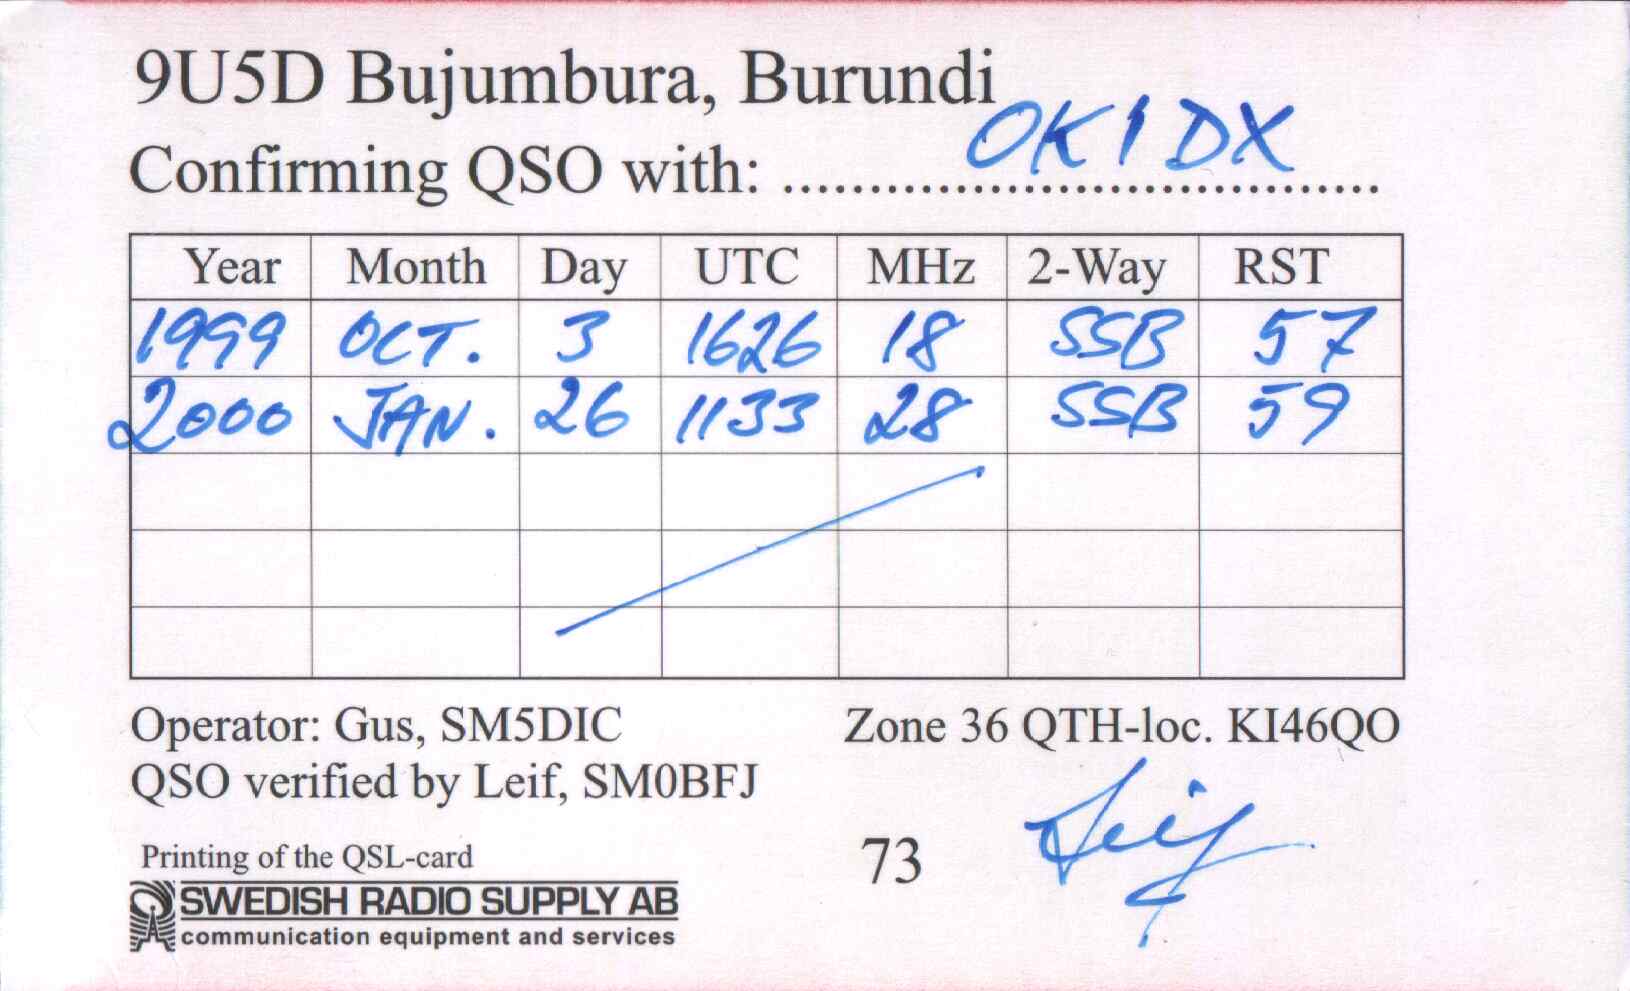 9U5D Bujumbura, Burundi
Confirming QSO with: OK1DX
Year Month Day UTC MHz 2-Way RST
1999 OCT. 3 1626 18 SSB 57
2000 JAN. 26 1133 28 SSB 59
Operator: Gus, SM5DIC Zone 36 QTH-loc. KI46QO
QSO verified by Leif, SM0BFJ
73 Leif
Printing of the QSL-card
SWEDISH RADIO SUPPLY AB
communication equipment and services